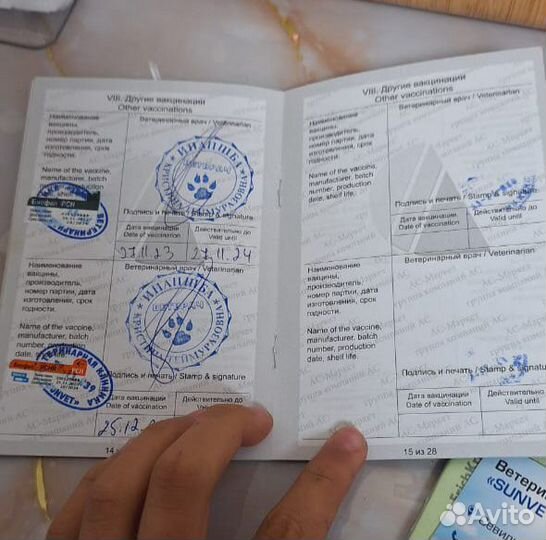 VIII. Другие вакцинации
Other vaccinations
Наименование
вакцины,
производитель,
номер партии, дата
изготовления, срок
годности.
Ветеринарный врач / Veterinarian
Name of the vaccine,
manufacturer, batch
number, production
Подпись и печать / Stamp & signature
Дата вакцинации
Date of vaccination
Действительно до
Valid until
27.11.23
27.11.24
Наименование
вакцины,
производитель,
номер партии, дата
изготовления, срок
годности.
Ветеринарный врач / Veterinarian
Name of the vaccine,
manufacturer, batch
number, production
date, shelf
Подпись и печать / Stamp & signature
Дата вакцинации
Date of vaccination
Действительно до
Valid until
25.12
14
VIII. Другие вакцинации
Other vaccinations
Наименование
вакцины,
производитель,
номер партии, дата
изготовления, срок
годности.
Ветеринарный врач / Veterinarian
Name of the vaccine,
manufacturer, batch
number, production
date, shelf life.
Подпись и печать / Stamp & signature
Дата вакцинации
Date of vaccination
Действительно до
Valid until
Наименование
вакцины,
производитель,
номер партии, дата
изготовления, срок
годности.
Ветеринарный врач / Veterinarian
Name of the vaccine,
manufacturer, batch
number, production
date, shelf life.
Подпись и печать / Stamp & signature
Дата вакцинации
Date of vaccination
Действительно до
Valid until
15 из 28
Ветерин
«SUNVE
Avito